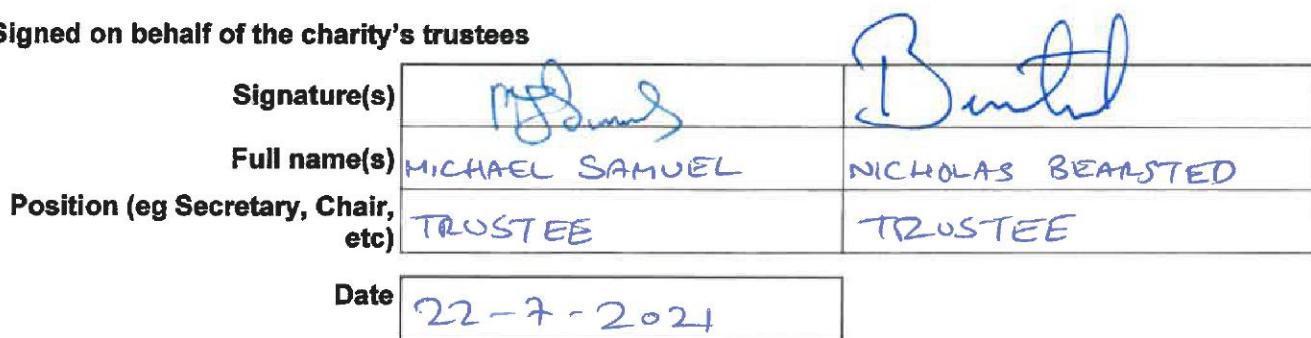 Signed on behalf of the charity's trustees
Signature(s)
Full name(s) MICHAEL SAMUEL NICHOLAS BEARSTED
Position (eg Secretary, Chair,
etc) TRUSTEE TRUSTEE
Date 22-7-2021